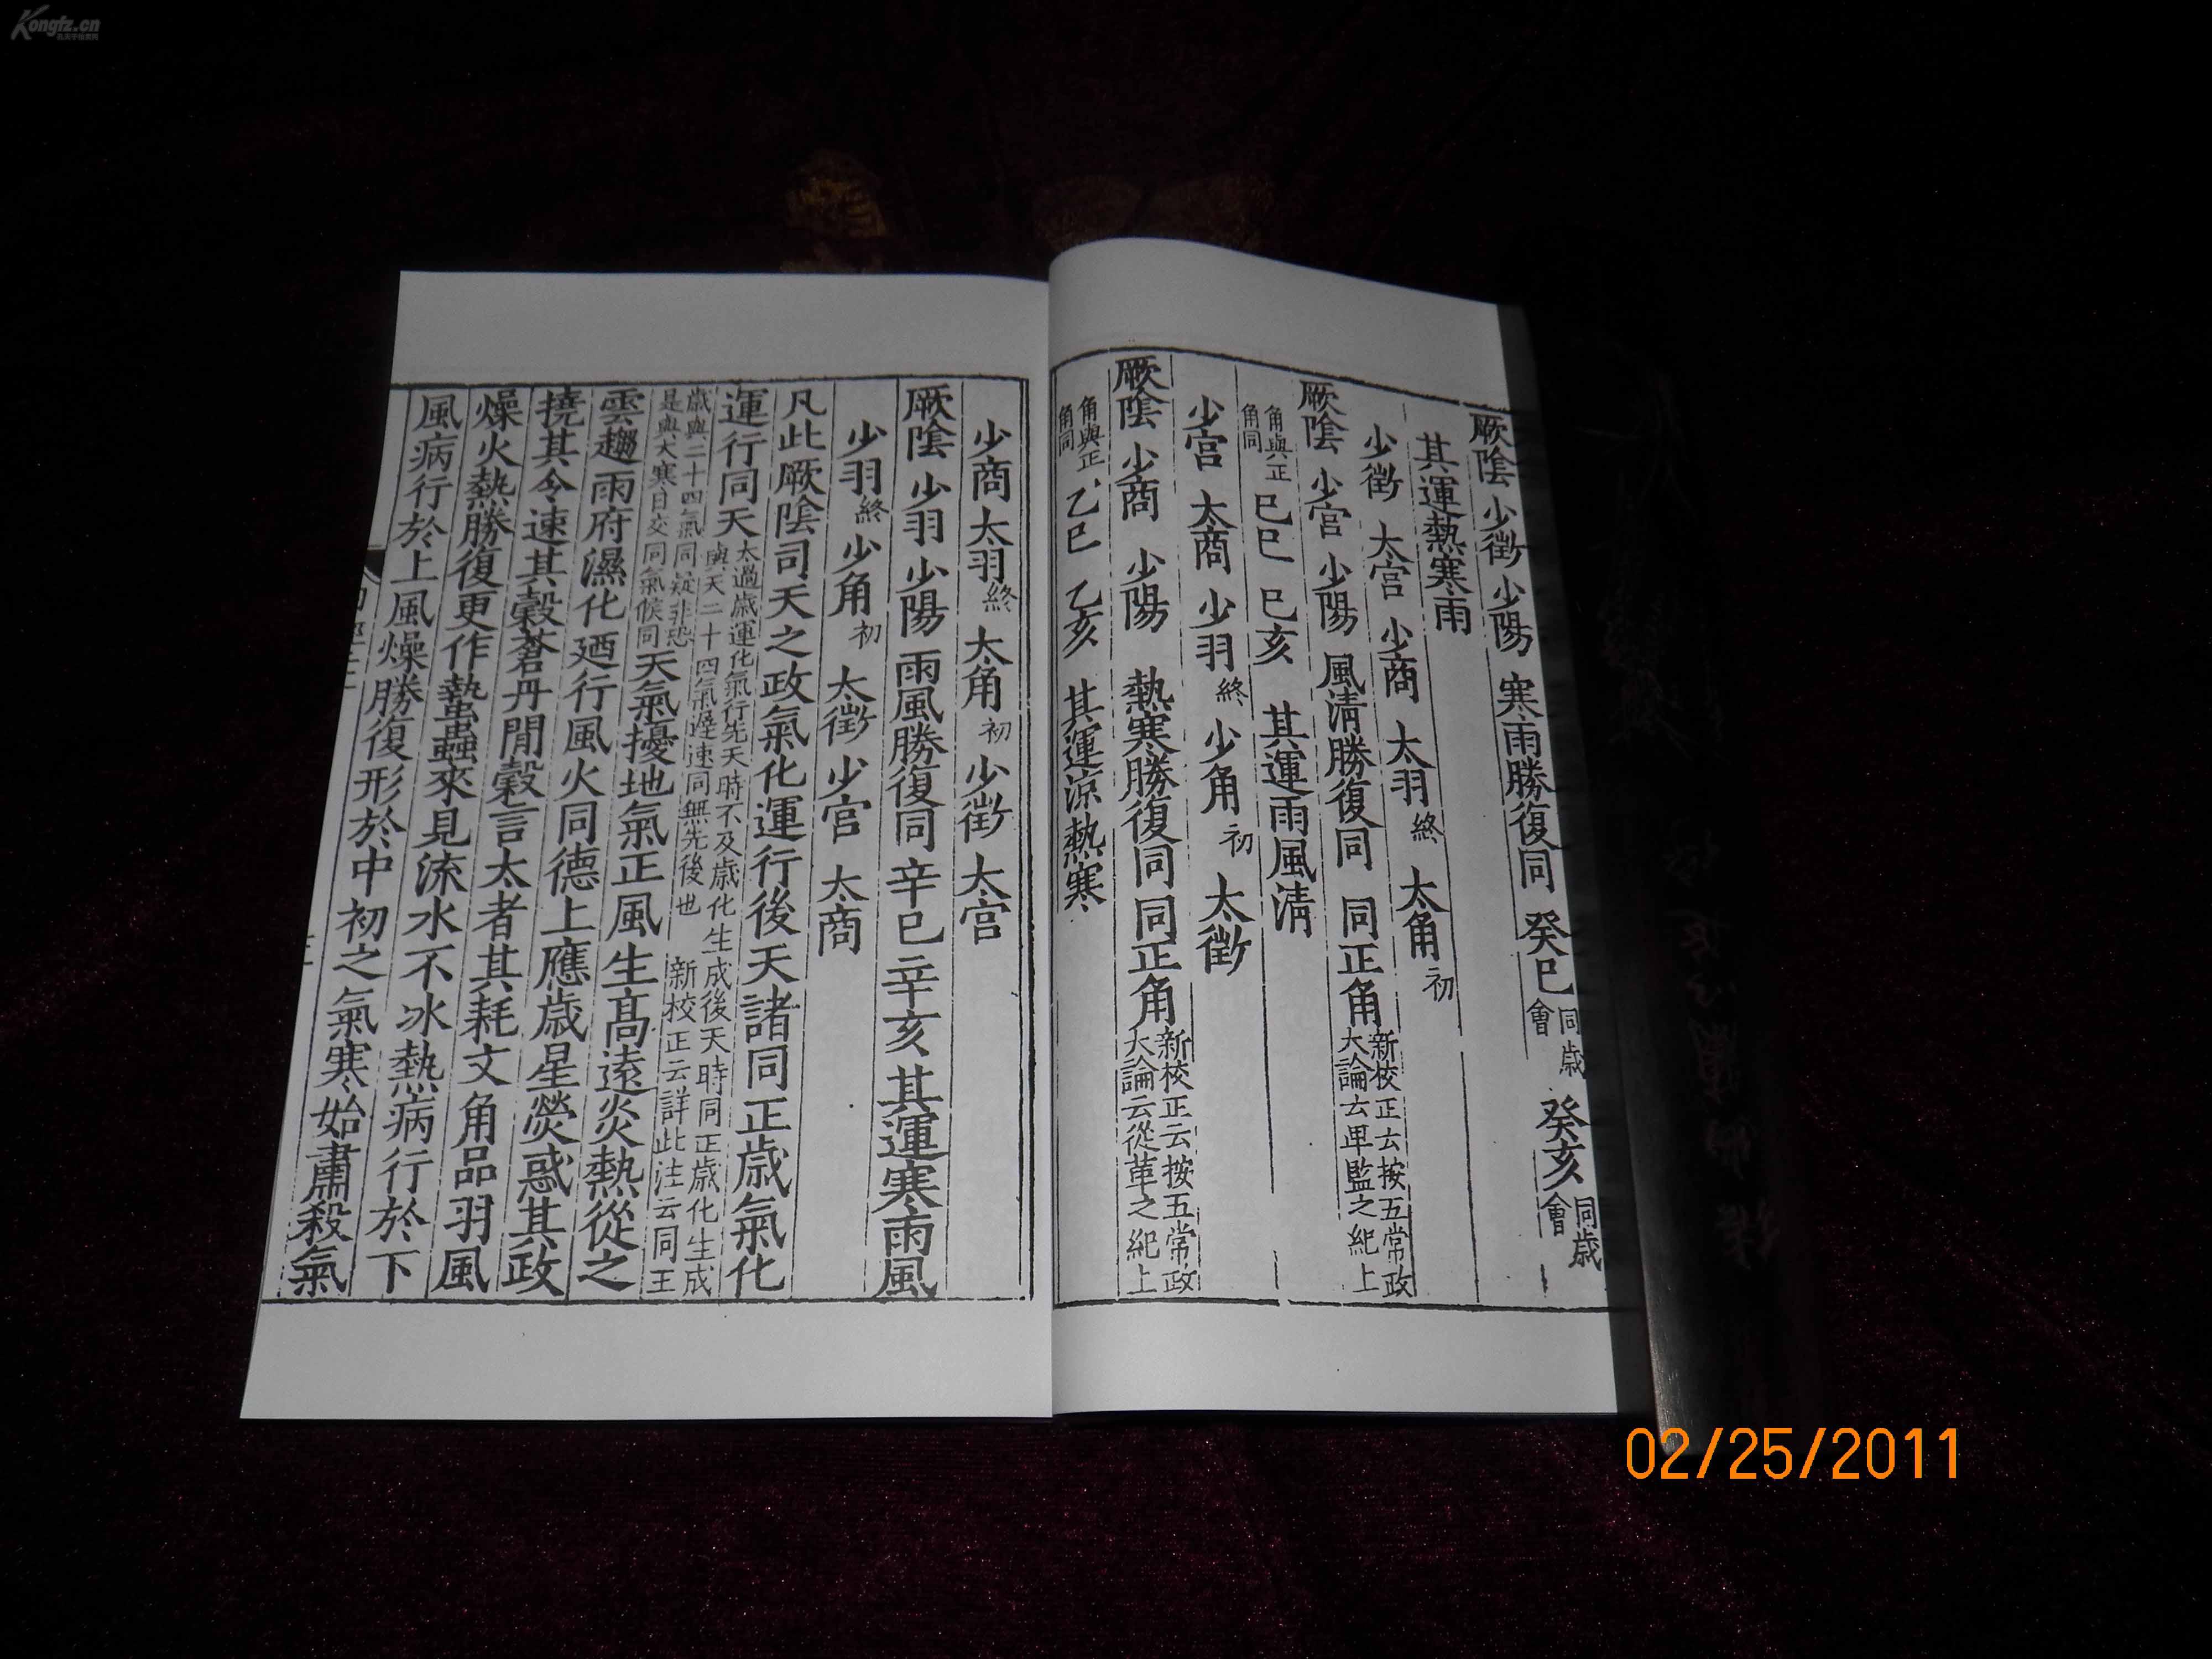 厥陰 少徵 少陽 寒雨勝復同 癸巳 同歲會 癸亥 同歲會
其運熱寒雨
少徵 太宮 少商 太羽 終 太角 初
厥陰 少宮 少陽 風清勝復同 同正角 新校正云按五常政大論云卑監之紀上
角與正角同 己巳 己亥 其運雨風清
少宮 太商 少羽 終 少角 初 太徵
厥陰 少商 少陽 熱寒勝復同 同正角 新校正云按五常政大論云從革之紀上
角與正角同 乙巳 乙亥 其運涼熱寒
少商 太羽 終 太角 初 少徵 太宮
厥陰 少羽 少陽 雨風勝復同 辛巳 辛亥 其運寒雨風
少羽 終 少角 初 太徵 少宮 太商
凡此厥陰司天之政氣化運行後天諸同正歲氣化
運行同天 太過歲運化氣行先天時不及歲化生成後天時同正歲化生成與天二十四氣遲速同無先後也 新校正云詳此注云同王
歲與二十四氣同疑非恐是與大寒日交同氣候同 天氣擾地氣正風生高遠炎熱從之
雲趨雨府濕化廼行風火同德上應歲星熒惑其政
撓其令速其穀蒼丹間穀言太者其耗文角品羽風
燥火熱勝復更作蟄蟲來見流水不冰熱病行於下
風病行於上風燥勝復形於中初之氣寒始肅殺氣
Kongfz.cn
02/25/2011